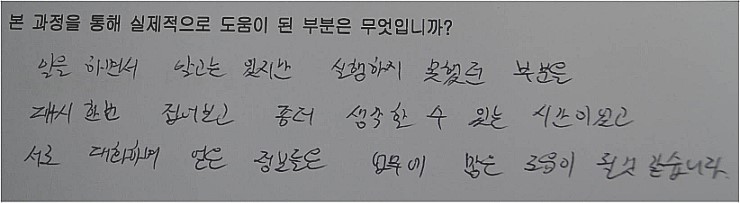 본 과정을 통해 실제적으로 도움이 된 부분은 무엇입니까?
일을 하면서 알고는 있지만 실행하지 못했던 부분을
다시 한번 집어보고 좀더 생각할 수 있는 시간이었고
서로 대화하며 얻은 정보들은 업무에 많은 도움이 될것 같습니다.